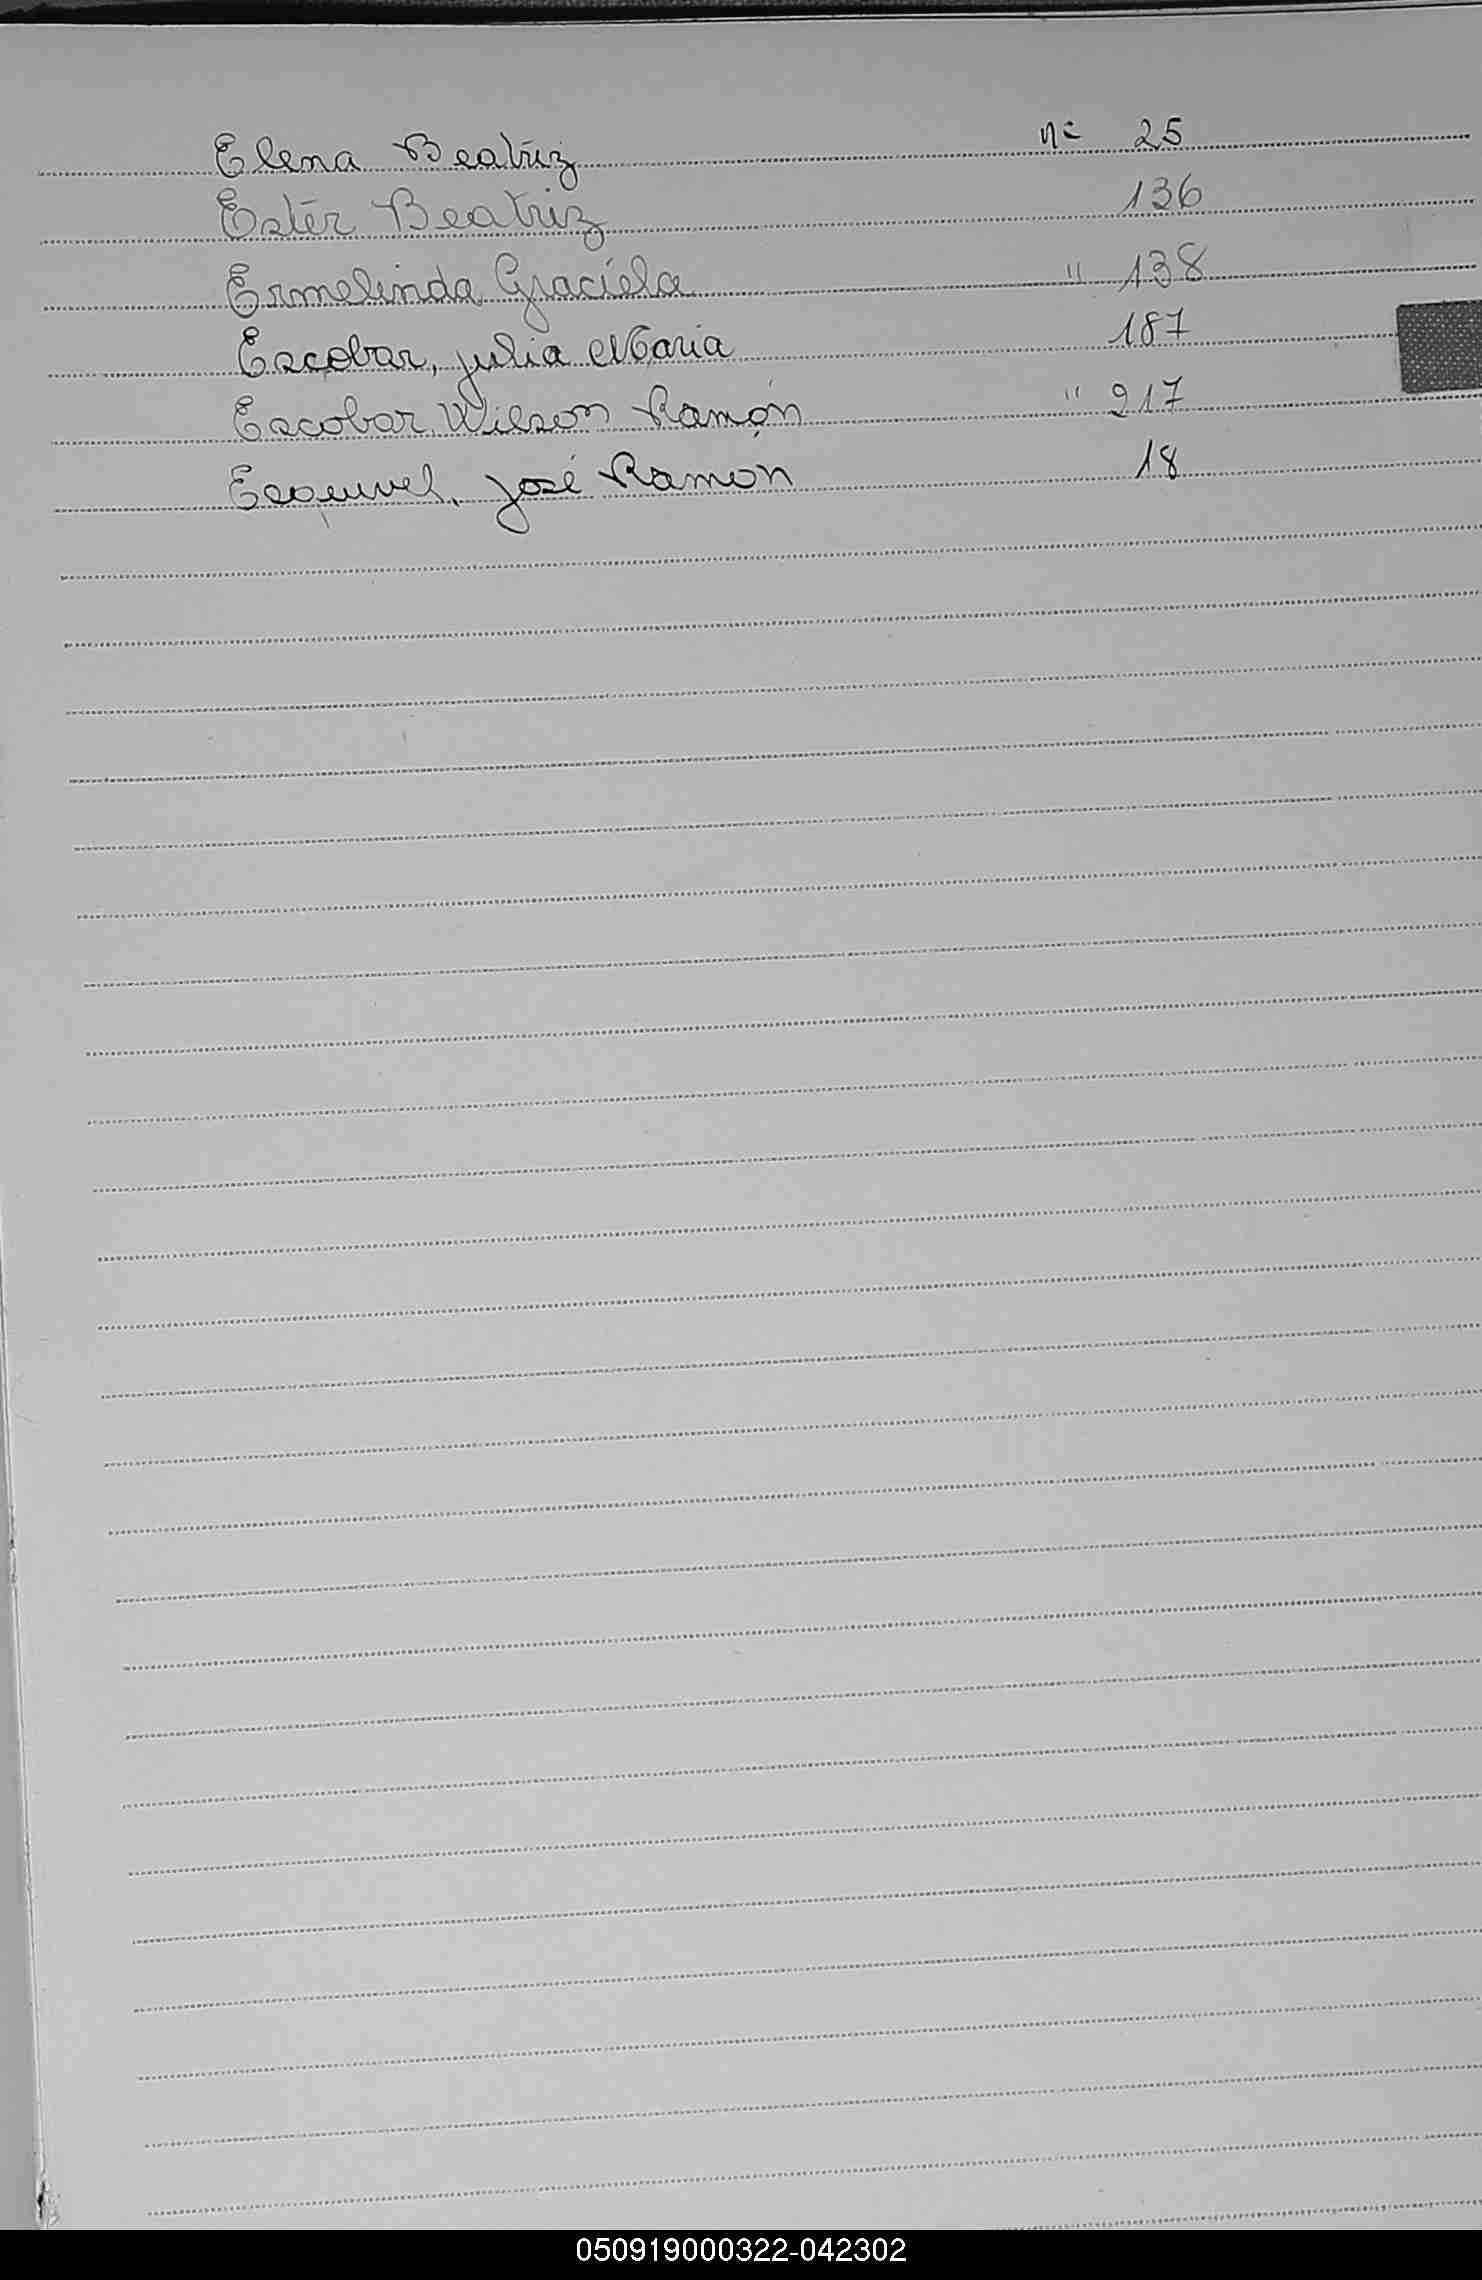 Elena Beatriz nº 25
Ester Beatriz 136
Ermelinda Graciela " 138
Escobar, Julia Maria 187
Escobar Wilson Ramón " 217
Esquivel, José Ramon 18
050919000322-042302